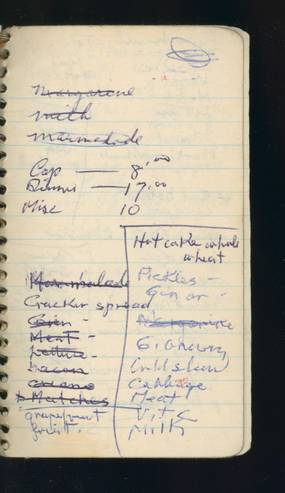 Margarine
Milk
Marmalade
Cap 8.00
Dinner 17.00
Misc 10
Marmalade
Cracker spread
Gin -
Meat -
Lettuce -
bacon
Matches
grapefruit
fruit.
Hot cake whole
wheat
Pickles -
Gin or -
Margarine
Cabbage
Meat
Vit C
Milk